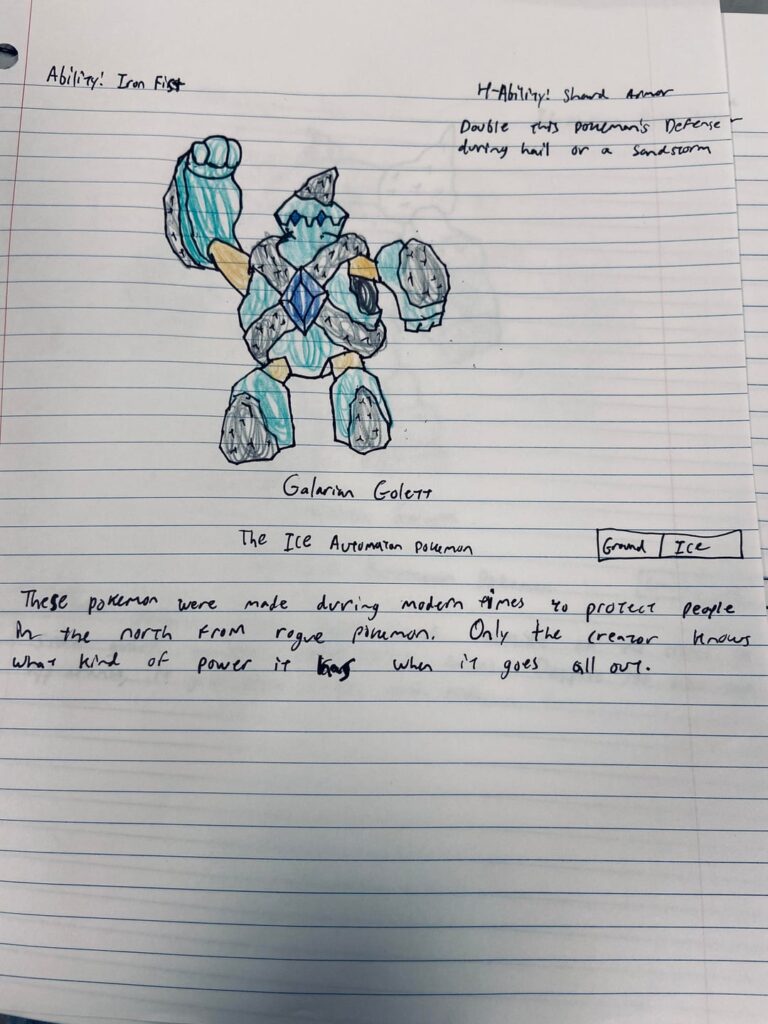 Ability: Iron Fist
H-Ability: Shard Armor
Double this pokemon's Defense
during hail or a sandstorm
Galarian Golett
The Ice Automaton pokemon
Ground Ice
These pokemon were made during modern times to protect people
in the north from rogue pokemon. Only the creator knows
what kind of power it has when it goes all out.